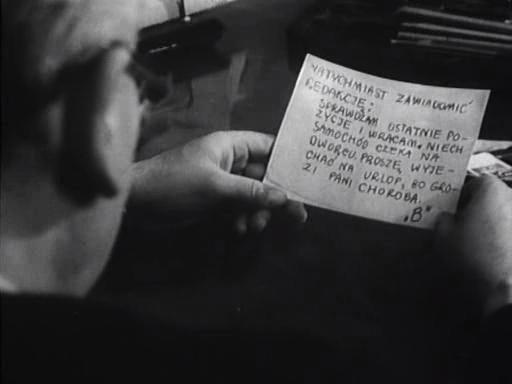 NATYCHMIAST ZAWIADOMIĆ
REDAKCJĘ:
SPRAWDZAM OSTATNIE PO-
ZYCJE I WRACAM. NIECH
SAMOCHÓD CZEKA NA
DWORCU. PROSZĘ WYJE-
CHAĆ NA URLOP, BO GRO-
ZI PANI CHOROBA.
„B”